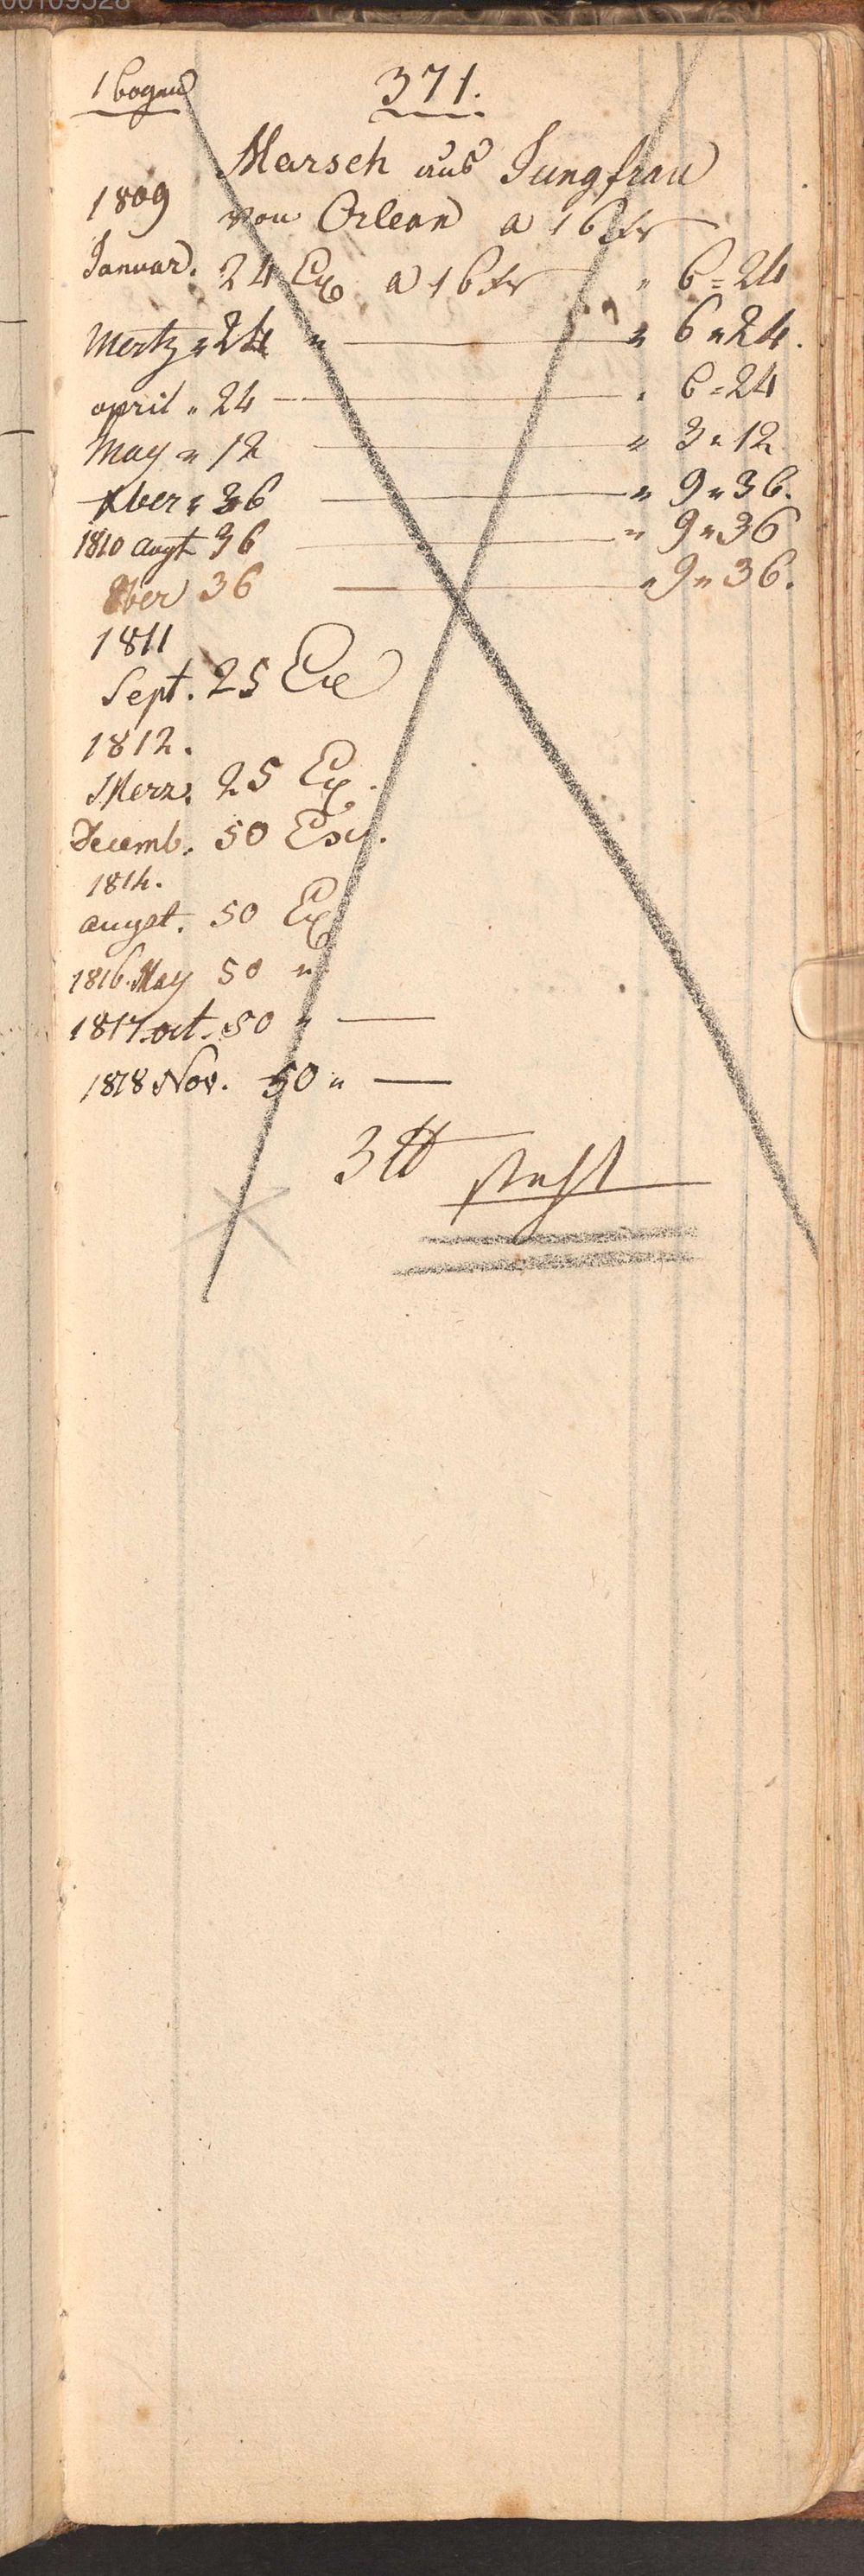 00109528
1 bogen
371.
Marsch aus Jungfrau
1809
von Orlean a 16 xr
Januar. 24 Ex a 16 xr " 6 = 24
Mertz " 24 " — " 6 " 24.
april " 24 — " 6 = 24
May " 12 — " 3 " 12
Xber " 36 — " 9 " 36.
1810 augt 36 — " 9 " 36
8ber 36 — " 9 " 36.
1811
Sept. 25 Exe
1812.
Merz. 25 Ex.
Decemb. 50 Ex.
1814.
augst. 50 Ex
1816. May 50 "
1817. oct. 50 " —
1818 Nov. 50 " —
3 tt steht